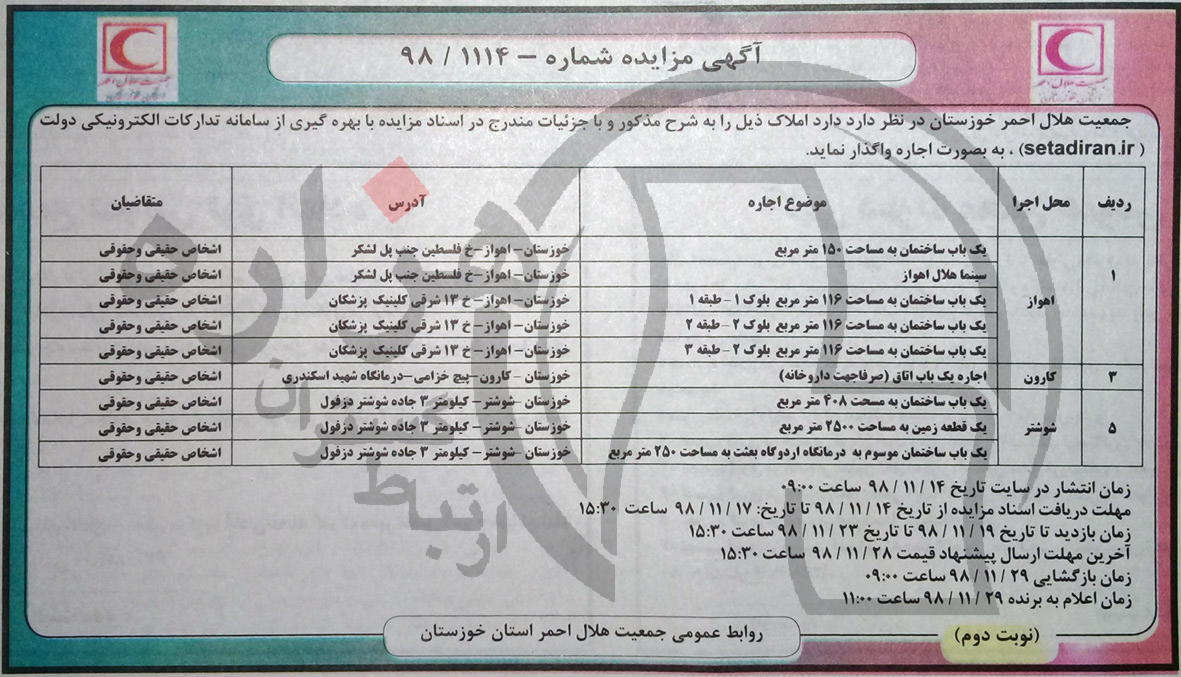 آگهی مزایده شماره – ۱۱۱۴ / ۹۸
جمعیت هلال احمر
جمعیت هلال احمر
جمعیت هلال احمر خوزستان در نظر دارد دارد املاک ذیل را به شرح مذکور و با جزئیات مندرج در اسناد مزایده با بهره گیری از سامانه تدارکات الکترونیکی دولت
( setadiran.ir) ، به بصورت اجاره واگذار نماید.
ردیف محل اجرا موضوع اجاره آدرس متقاضیان
۱ اهواز
یک باب ساختمان به مساحت ۱۵۰ متر مربع خوزستان– اهواز–خ فلسطین جنب پل لشگر اشخاص حقیقی وحقوقی
سینما هلال اهواز خوزستان– اهواز–خ فلسطین جنب پل لشگر اشخاص حقیقی وحقوقی
یک باب ساختمان به مساحت ۱۱۶ متر مربع بلوک ۱ – طبقه ۱ خوزستان– اهواز– خ ۱۳ شرقی کلینیک پزشکان اشخاص حقیقی وحقوقی
یک باب ساختمان به مساحت ۱۱۶ متر مربع بلوک ۲ – طبقه ۲ خوزستان– اهواز– خ ۱۳ شرقی کلینیک پزشکان اشخاص حقیقی وحقوقی
یک باب ساختمان به مساحت ۱۱۶ متر مربع بلوک ۲ – طبقه ۳ خوزستان– اهواز– خ ۱۳ شرقی کلینیک پزشکان اشخاص حقیقی وحقوقی
۳ کارون اجاره یک باب اتاق (صرفاجهت داروخانه) خوزستان – کارون–پیچ خزامی–درمانگاه شهید اسکندری اشخاص حقیقی وحقوقی
۵ شوشتر
یک باب ساختمان به مسحت ۴۰۸ متر مربع خوزستان –شوشتر– کیلومتر ۳ جاده شوشتر دزفول اشخاص حقیقی وحقوقی
یک قطعه زمین به مساحت ۲۵۰۰ متر مربع خوزستان –شوشتر– کیلومتر ۳ جاده شوشتر دزفول اشخاص حقیقی وحقوقی
یک باب ساختمان موسوم به درمانگاه اردوگاه بعثت به مساحت ۲۵۰ متر مربع خوزستان –شوشتر– کیلومتر ۳ جاده شوشتر دزفول اشخاص حقیقی وحقوقی
زمان انتشار در سایت تاریخ ۱۴ / ۱۱ / ۹۸ ساعت ۰۹:۰۰
مهلت دریافت اسناد مزایده از تاریخ ۱۴ / ۱۱ / ۹۸ تا تاریخ: ۱۷ / ۱۱ / ۹۸ ساعت ۱۵:۳۰
زمان بازدید تا تاریخ ۱۹ / ۱۱ / ۹۸ تا تاریخ ۲۳ / ۱۱ / ۹۸ ساعت ۱۵:۳۰
آخرین مهلت ارسال پیشنهاد قیمت ۲۸ / ۱۱ / ۹۸ ساعت ۱۵:۳۰
زمان بازگشایی ۲۹ / ۱۱ / ۹۸ ساعت ۰۹:۰۰
زمان اعلام به برنده ۲۹ / ۱۱ / ۹۸ ساعت ۱۱:۰۰
روابط عمومی جمعیت هلال احمر استان خوزستان
(نوبت دوم)
هزاره
ارتباط